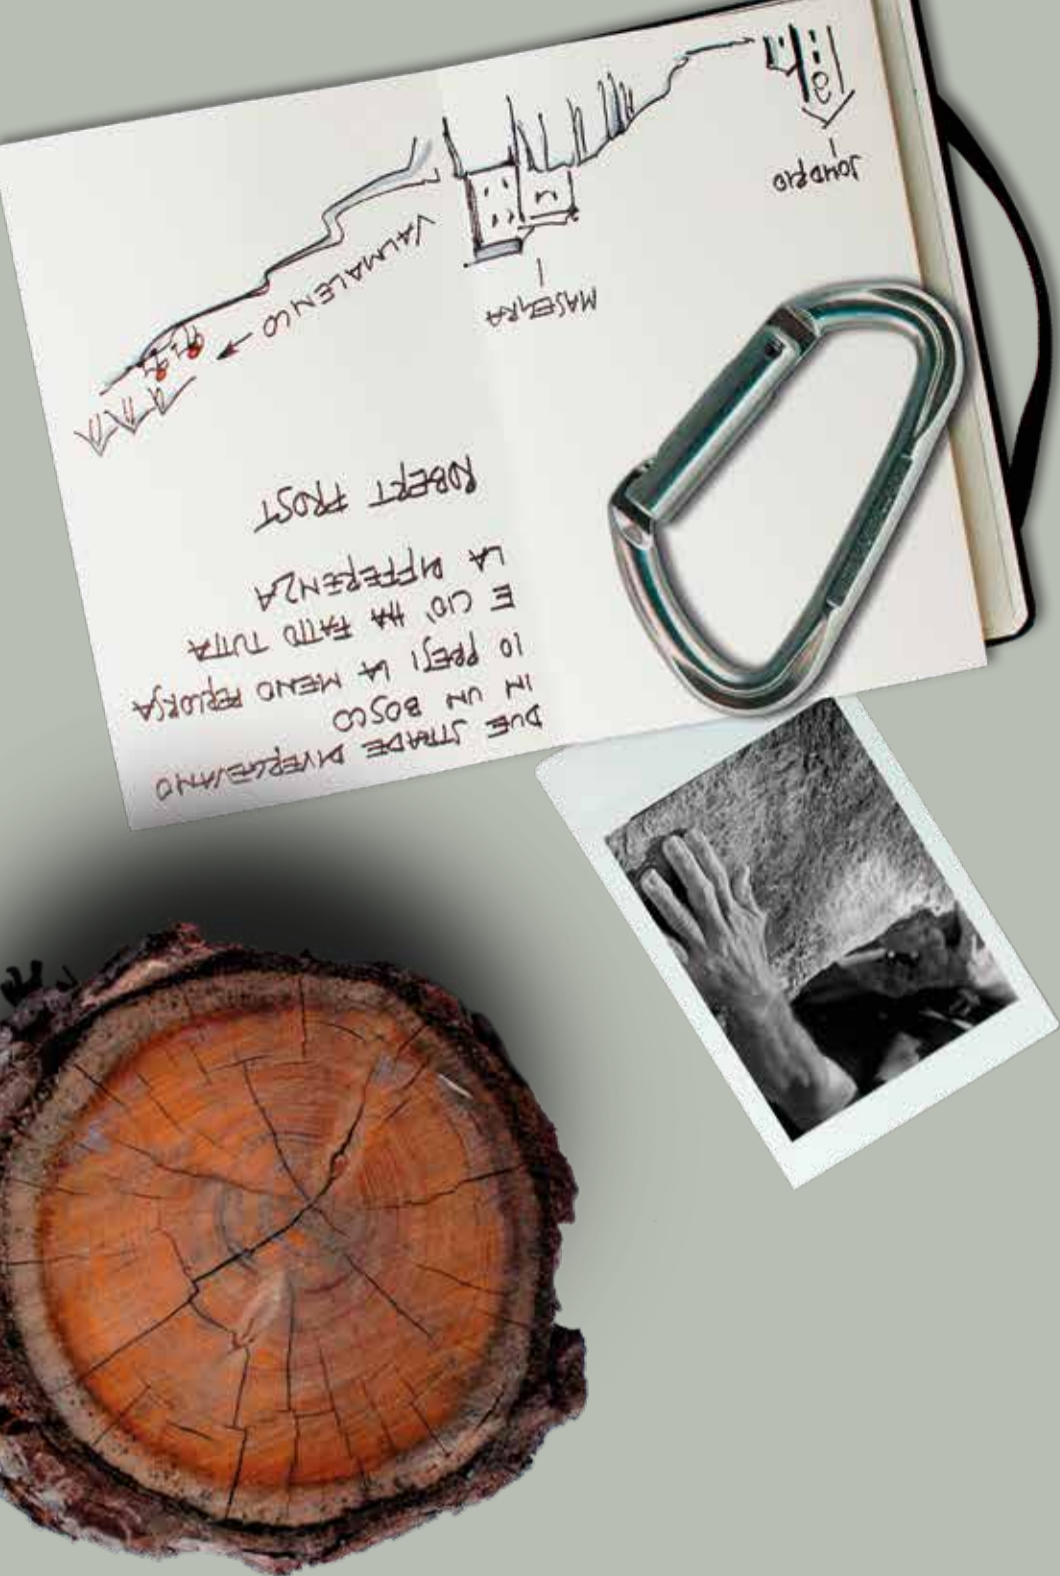 DUE STRADE DIVERGEVANO
IN UN BOSCO
IO PRESI LA MENO PERCORSA
E CIO' HA FATTO TUTTA
LA DIFFERENZA
ROBERT FROST
VALMALENCO
MASEGRA
SONDRIO